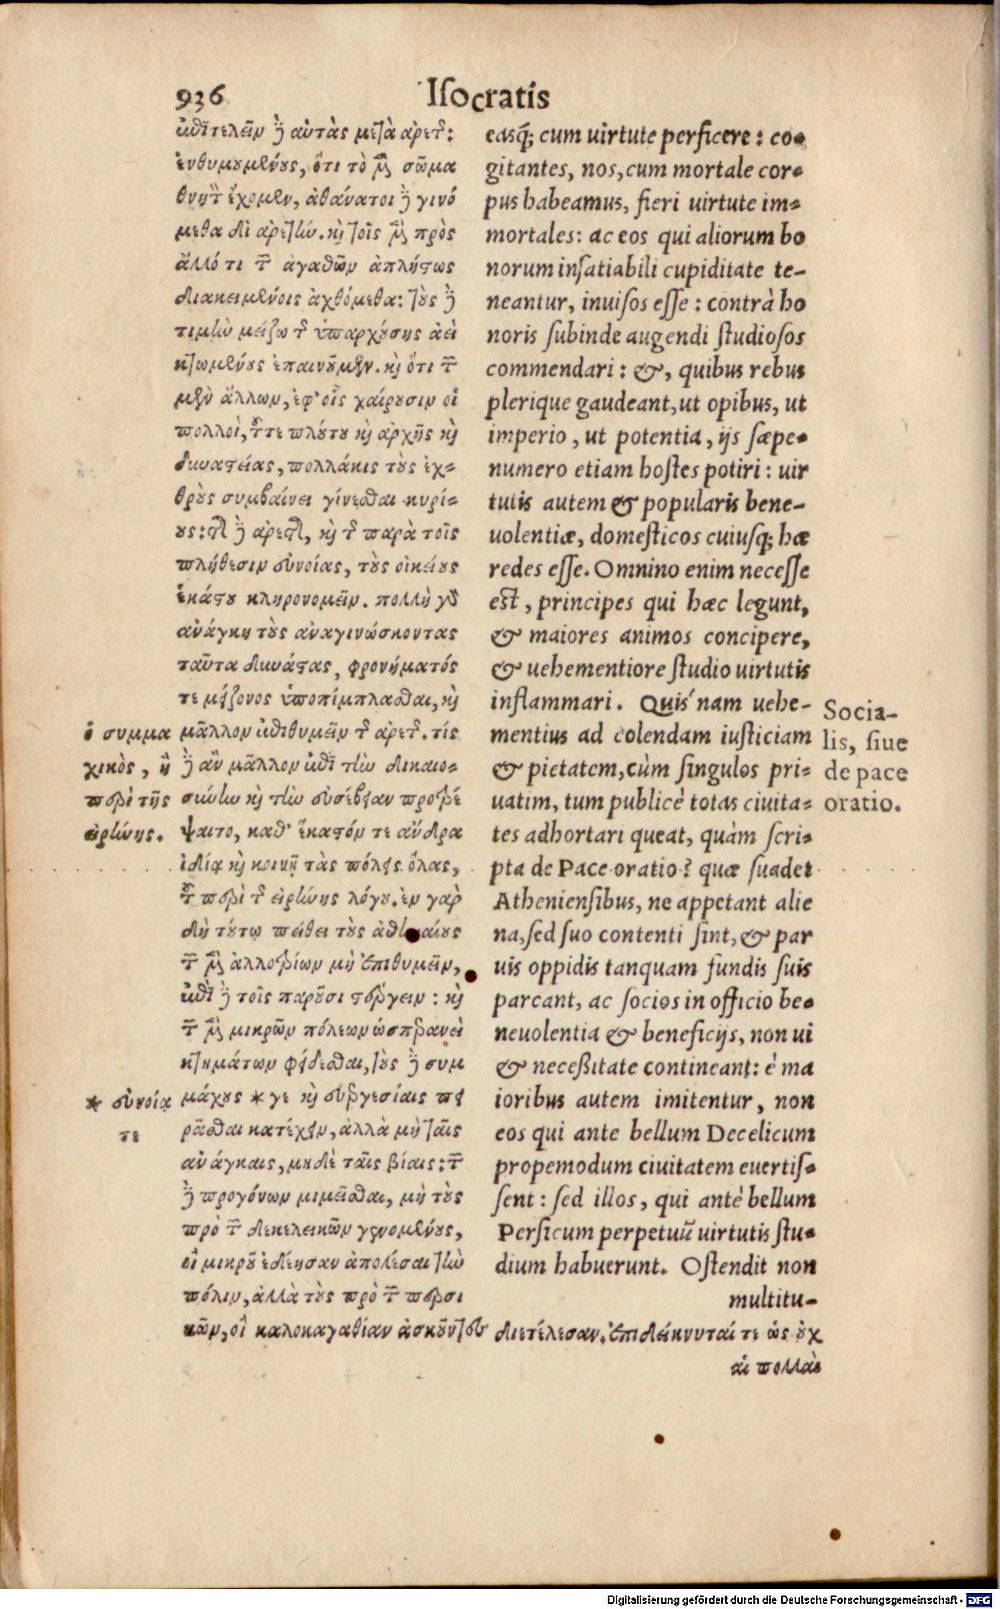 936 Isocratis
ἐπιτελεῖν δὲ αὐτὰς μετὰ ἀρετῆς:
ἐνθυμουμένους, ὅτι τὸ μὲν σῶμα
θνητὸν ἔχομεν, ἀθάνατοι δὲ γινό
μεθα δι' ἀρετὴν. καὶ τοῖς μὲν πρὸς
ἄλλό τι τῶν ἀγαθῶν ἀπλήστως
διακειμένοις ἀχθόμεθα: τοὺς δὲ
τιμὴν μείζω τῆς ὑπαρχούσης ἀεὶ
κτωμένους ἐπαινοῦμεν. καὶ ὅτι τῶν
μὲν ἄλλων, ἐφ' οἷς χαίρουσιν οἱ
πολλοὶ, τοῦτε πλούτου καὶ ἀρχῆς καὶ
δυναστείας, πολλάκις τοὺς ἐχ-
θροὺς συμβαίνει γίνεσθαι κυρί-
ους: τῆς δὲ ἀρετῆς, καὶ τῆς παρὰ τοῖς
πλήθεσιν εὐνοίας, τοὺς οἰκείους
ἑκάστου κληρονομεῖν. πολλὴ γὰρ
ἀνάγκη τοὺς ἀναγινώσκοντας
ταῦτα δυνάστας, φρονήματός
τε μείζονος ὑποπίμπλασθαι, καὶ
μᾶλλον ἐπιθυμεῖν τῆς ἀρετῆς. τίς
δ' ἂν μᾶλλον ἐπὶ τὴν δικαιο-
σύνην καὶ τὴν εὐσέβειαν προτρέ
ψαιτο, καθ' ἕκαστόν τε ἄνδρα
ἰδίᾳ καὶ κοινῇ τὰς πόλεις ὅλας,
τοῦ περὶ τῆς εἰρήνης λόγου. ἐν γὰρ
δὴ τούτῳ πείθει τοὺς ἀθηναίους
τῶν μὲν ἀλλοτρίων μὴ ἐπιθυμεῖν,
ἐπὶ δὲ τοῖς παροῦσι στέργειν: καὶ
τῶν μὲν μικρῶν πόλεων ὡσπερανεὶ
κτημάτων φείδεσθαι, τοὺς δὲ συμ
μάχους * γε καὶ εὐεργεσίαις πει
ρᾶσθαι κατέχειν, ἀλλὰ μὴ ταῖς
ἀνάγκαις, μηδὲ ταῖς βίαις: τῶν
δὲ προγόνων μιμεῖσθαι, μὴ τοὺς
πρὸ τῶν δεκελεικῶν γενομένους,
οἳ μικροῦ ἐδέησαν ἀπολέσαι τὴν
πόλιν, ἀλλὰ τοὺς πρὸ τῶν περσι
κῶν, οἳ καλοκαγαθίαν ἀσκοῦντες διετέλεσαν. ἐπιδείκνυταί τε ὡς οὐχ
αἱ πολλαὶ
ὁ συμμα
χικὸς, ἢ
περὶ τῆς
εἰρήνης.
* εὐνοίᾳ
τε
easq́; cum uirtute perficere: co-
gitantes, nos, cum mortale cor-
pus habeamus, fieri uirtute im-
mortales: ac eos qui aliorum bo
norum insatiabili cupiditate te-
neantur, inuisos esse: contrà ho
noris subinde augendi studiosos
commendari: &, quibus rebus
plerique gaudeant, ut opibus, ut
imperio, ut potentia, ijs sæpe-
numero etiam hostes potiri: uir
tutis autem & popularis bene-
uolentiæ, domesticos cuiusq; hæ
redes esse. Omnino enim necesse
est, principes qui hæc legunt,
& maiores animos concipere,
& uehementiore studio uirtutis
inflammari. Quis'nam uehe-
mentius ad colendam iusticiam
& pietatem, cùm singulos pri-
uatim, tum publicè totas ciuita-
tes adhortari queat, quàm scri-
pta de Pace oratio? quæ suadet
Atheniensibus, ne appetant alie
na, sed suo contenti sint, & par
uis oppidis tanquam fundis suis
parcant, ac socios in officio be-
neuolentia & beneficijs, non ui
& necessitate contineant: è ma
ioribus autem imitentur, non
eos qui ante bellum Decelicum
propemodum ciuitatem euertis-
sent: sed illos, qui antè bellum
Persicum perpetuũ uirtutis stu-
dium habuerunt. Ostendit non
multitu-
Socia-
lis, siue
de pace
oratio.
Digitalisierung gefördert durch die Deutsche Forschungsgemeinschaft - DFG